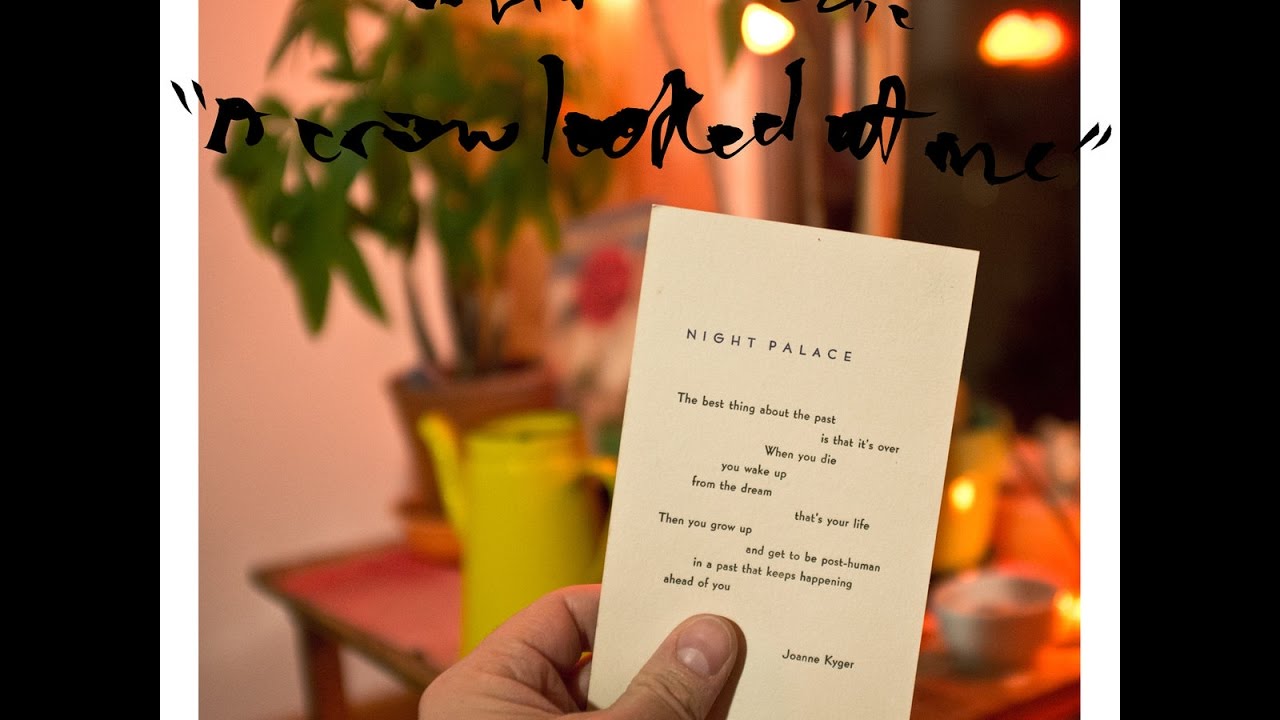 "A crow looked at me"
NIGHT PALACE
The best thing about the past
is that it's over
When you die
you wake up
from the dream
that's your life
Then you grow up
and get to be post-human
in a past that keeps happening
ahead of you
Joanne Kyger